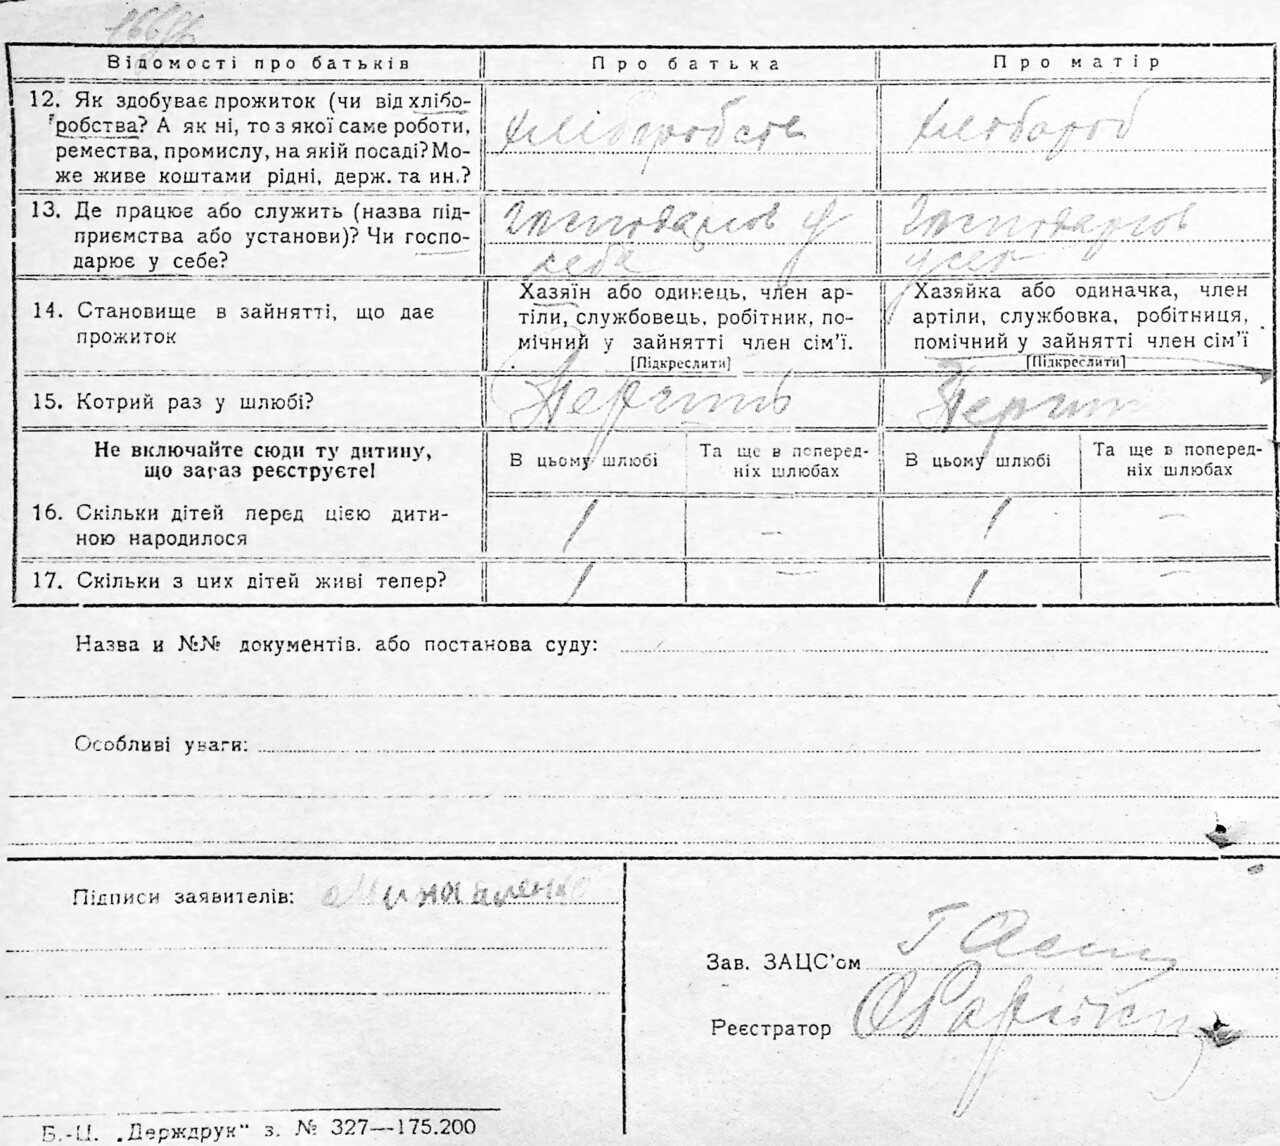 Відомості про батьків
Про батька
Про матір
12. Як здобуває прожиток (чи від хлібо-
робства? А як ні, то з якої саме роботи,
ремества, промислу, на якій посаді? Мо-
же живе коштами рідні, держ. та ин.?
хліборобств
хлібороб
13. Де працює або служить (назва під-
приємства або установи)? Чи госпо-
дарює у себе?
у
себе
14. Становище в зайнятті, що дає
прожиток
Хазяїн або одинець, член ар-
тіли, службовець, робітник, по-
мічний у зайнятті член сім'ї.
[Підкреслити]
Хазяйка або одиначка, член
артіли, службовка, робітниця,
помічний у зайнятті член сім'ї
[Підкреслити]
15. Котрий раз у шлюбі?
Не включайте сюди ту дитину,
що зараз реєструєте!
В цьому шлюбі
Та ще в поперед-
ніх шлюбах
В цьому шлюбі
Та ще в поперед-
ніх шлюбах
16. Скільки дітей перед цією дити-
ною народилося
1
—
1
—
17. Скільки з цих дітей живі тепер?
1
—
1
—
Назва и №№ документів. або постанова суду:
Особливі уваги:
Підписи заявителів:
Зав. ЗАЦС'ом
Реєстратор
Б.-Ц. „Держдрук“ з. № 327—175.200